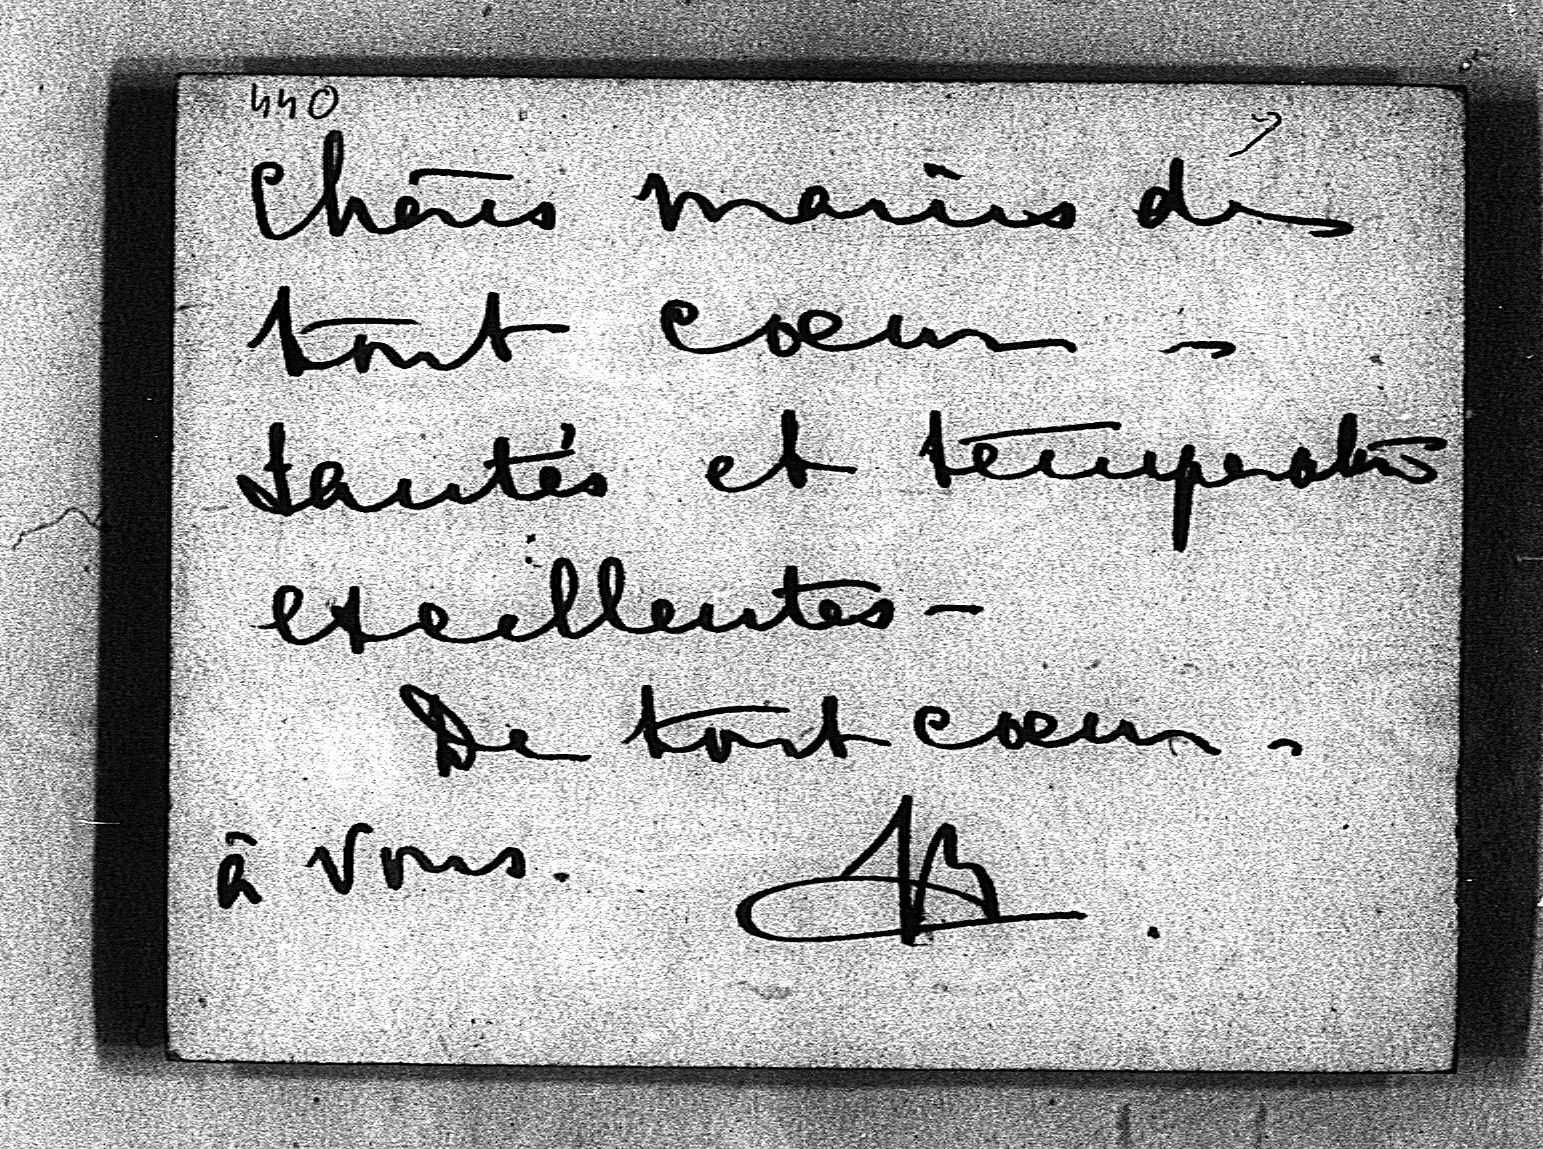 440
Chéris mercis de
tout coeur -
Santés et températures
excellentes -
De tout coeur -
à vous.